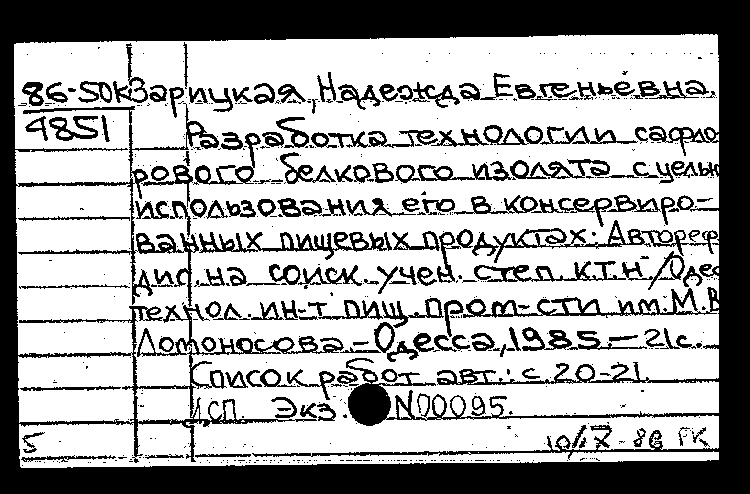 86-50к Зарицкая, Надежда Евгеньевна.
4851 Разработка технологии сафло-
рового белкового изолята с целью
использования его в консервиро-
ванных пищевых продуктах: Автореф.
дис. на соиск. учен. степ. к.т.н./Одес.
технол. ин-т пищ. пром-сти им. М.В.
Ломоносова.-Одесса, 1985.- 21с.
Список работ авт.: с. 20-21.
Экз. N00095.
5 10/IX-86 РК